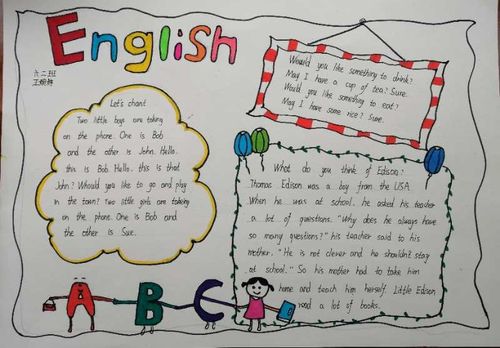 English
六二班
Let's chant
Two little boys are taking
on the phone. One is Bob
and the other is John. Hello.
this is Bob Hello. this is that
John? Whould you like to go and play
in the town? Two little girls are takeing
on the phone. One is Bob and
the other is Sue.
Would you like something to drink?
May I have a cup of tea? Sure.
Would you like something to eat?
May I have some rice? Sure.
What do you think of Edison?
Thomas Edison was a boy from the USA.
When he was at school. he asked his teacher
a lot of questions. "Why does he always have
so many questions?" his teacher said to his
mother. "He is not clever and he shouldn't stay
at school." So his mother had to take him
home and teach him herself. Little Edison
read a lot of books.
ABC